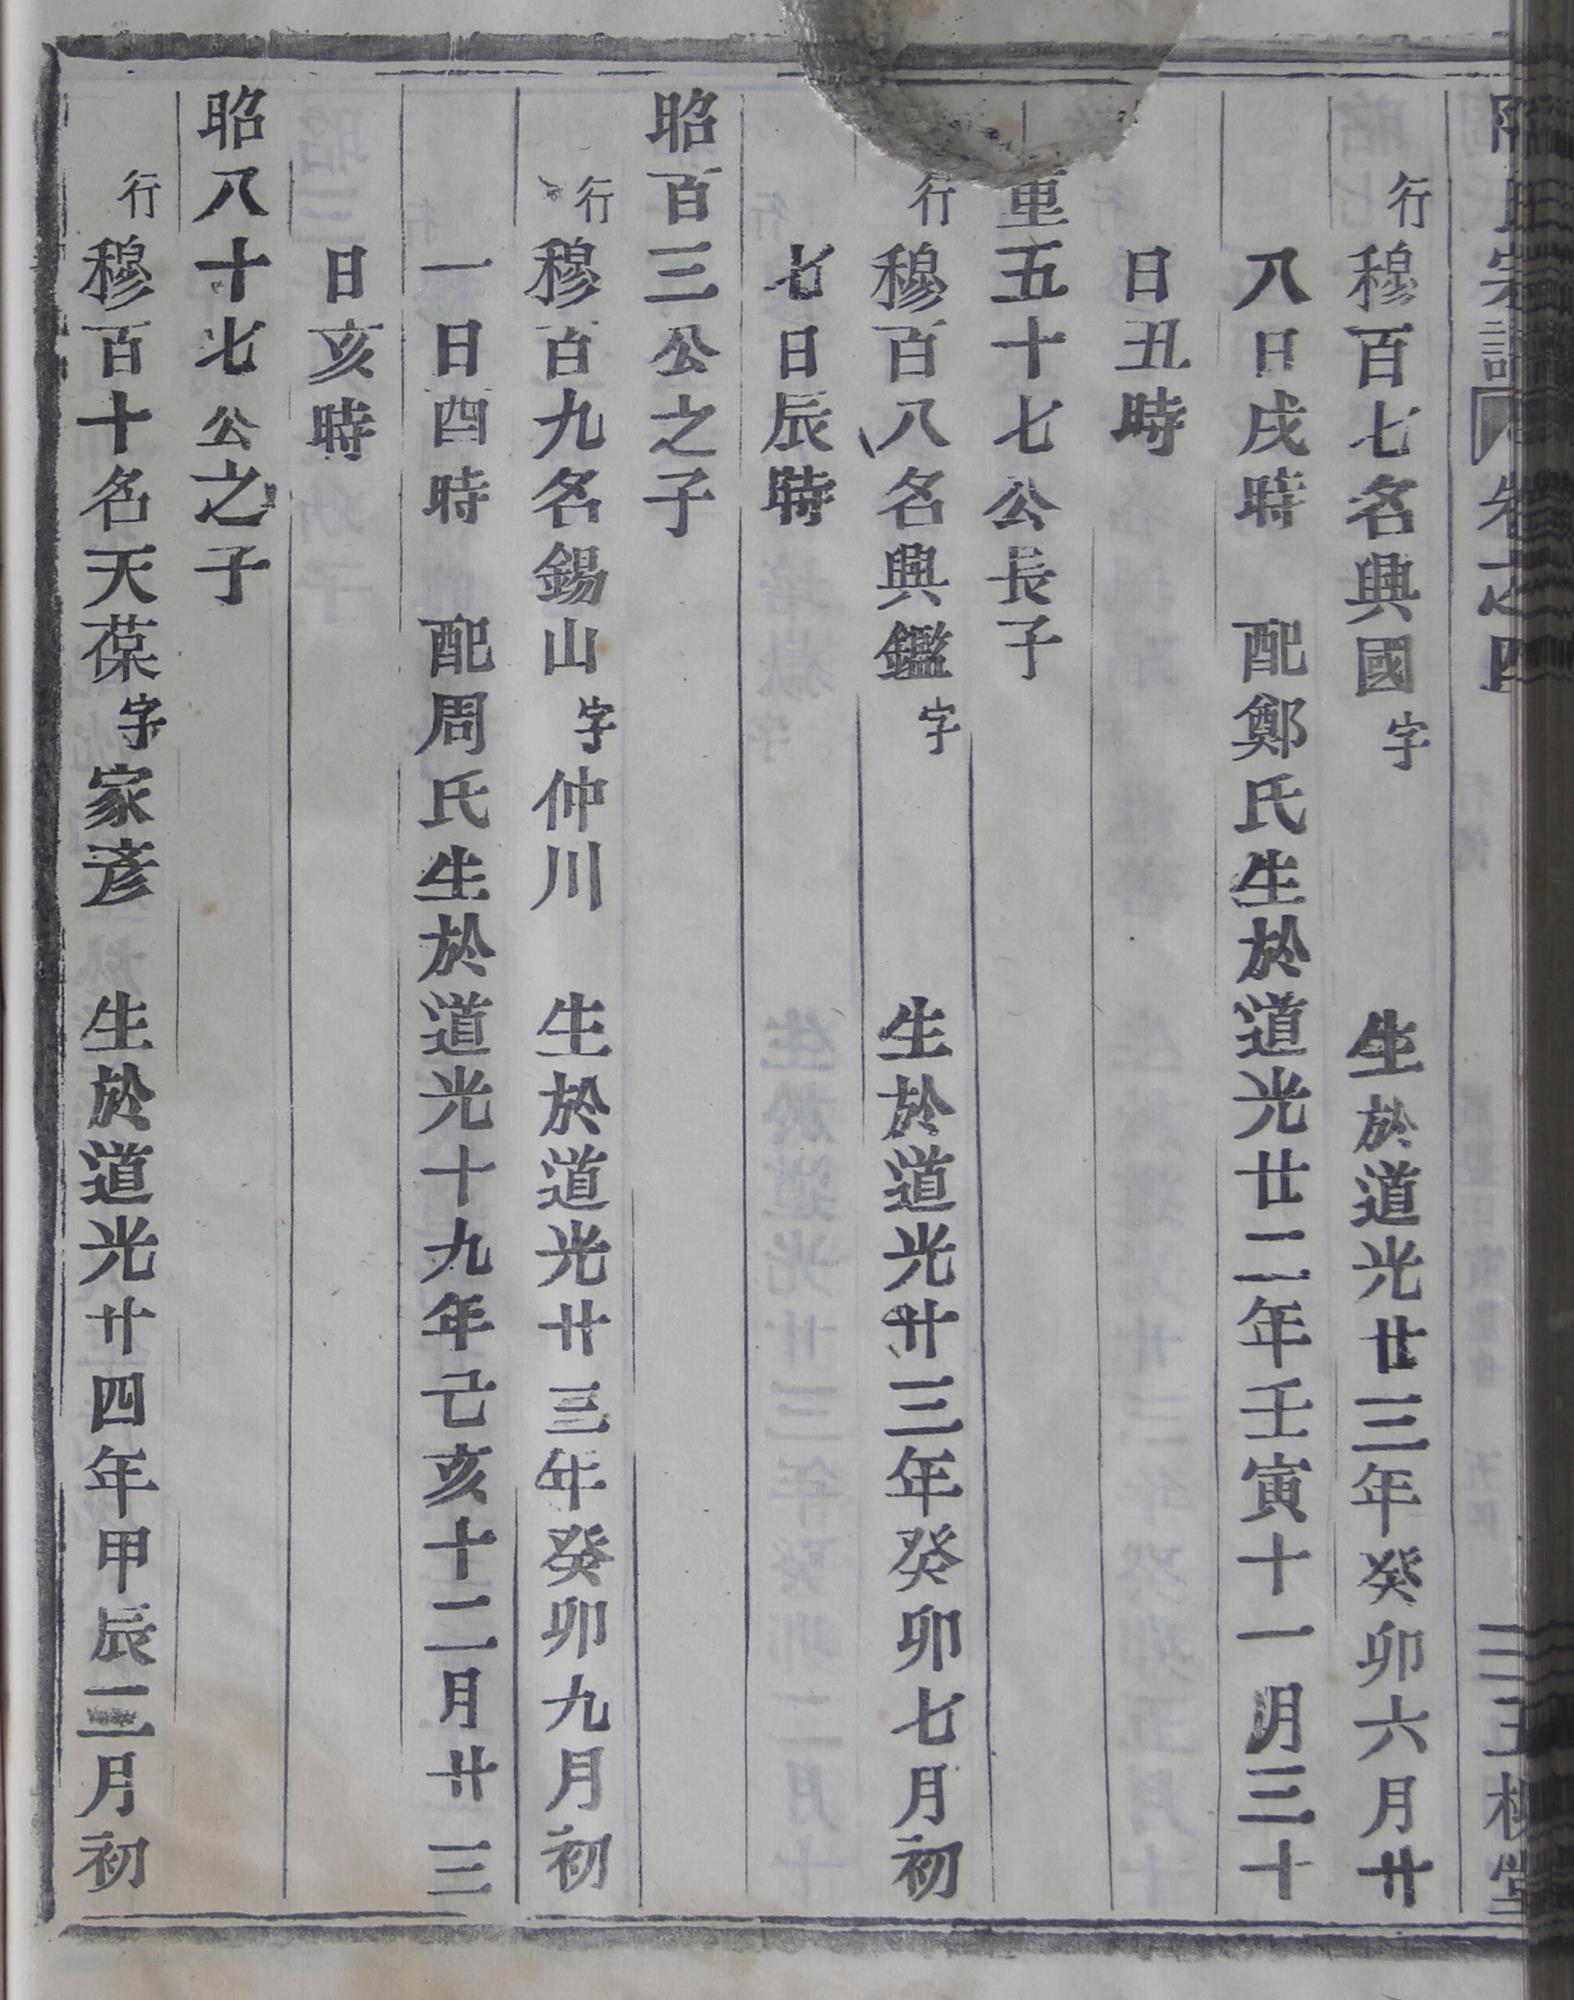 氏宗譜 卷之四 三王槐堂
行穆百七名興國字 生於道光廿三年癸卯六月廿
八日戌時 配鄭氏生於道光廿二年壬寅十一月三十
日丑時
重五十七公長子
行穆百八名興鑑字 生於道光廿三年癸卯七月初
七日辰時
昭百三公之子
行穆百九名錫山字仲川 生於道光廿三年癸卯九月初
一日酉時 配周氏生於道光十九年己亥十二月廿三
日亥時
昭八十七公之子
行穆百十名天葆字家彦 生於道光廿四年甲辰三月初